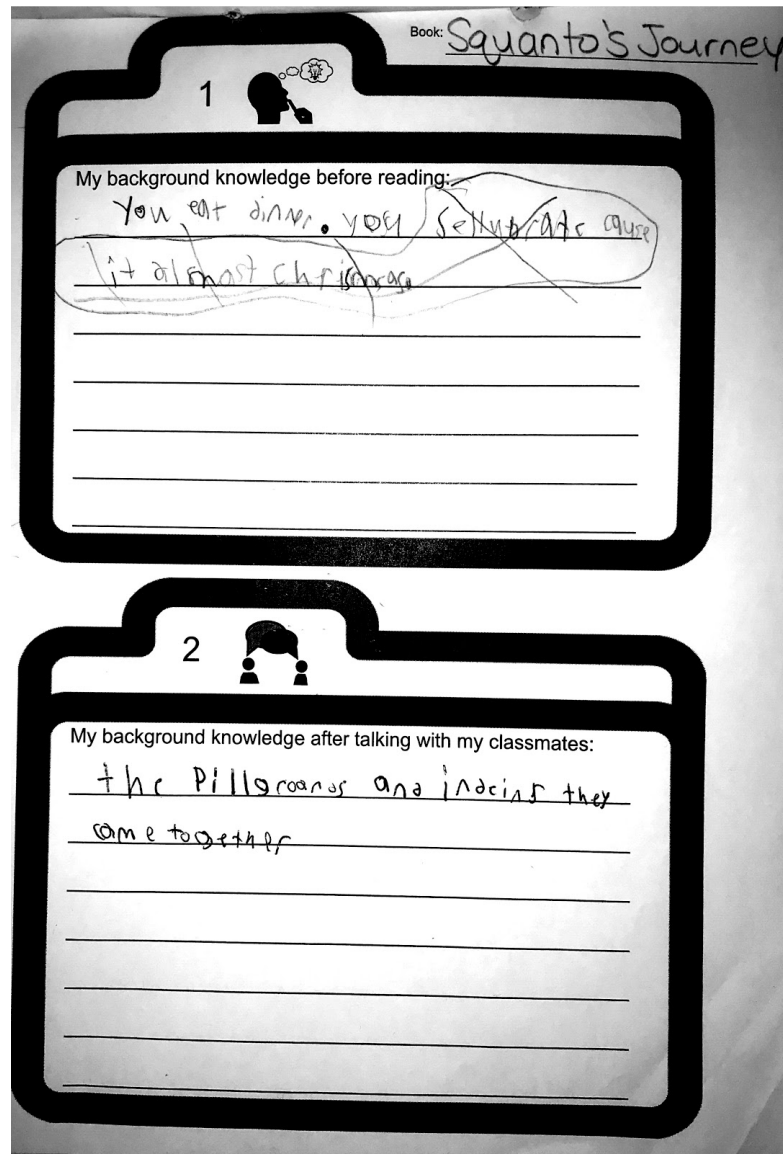 Book: Squanto's Journey
1
My background knowledge before reading:
You eat dinner. you sellybrate cause
it almost chrismase
2
My background knowledge after talking with my classmates:
the Pillgroands and indeins they
came together